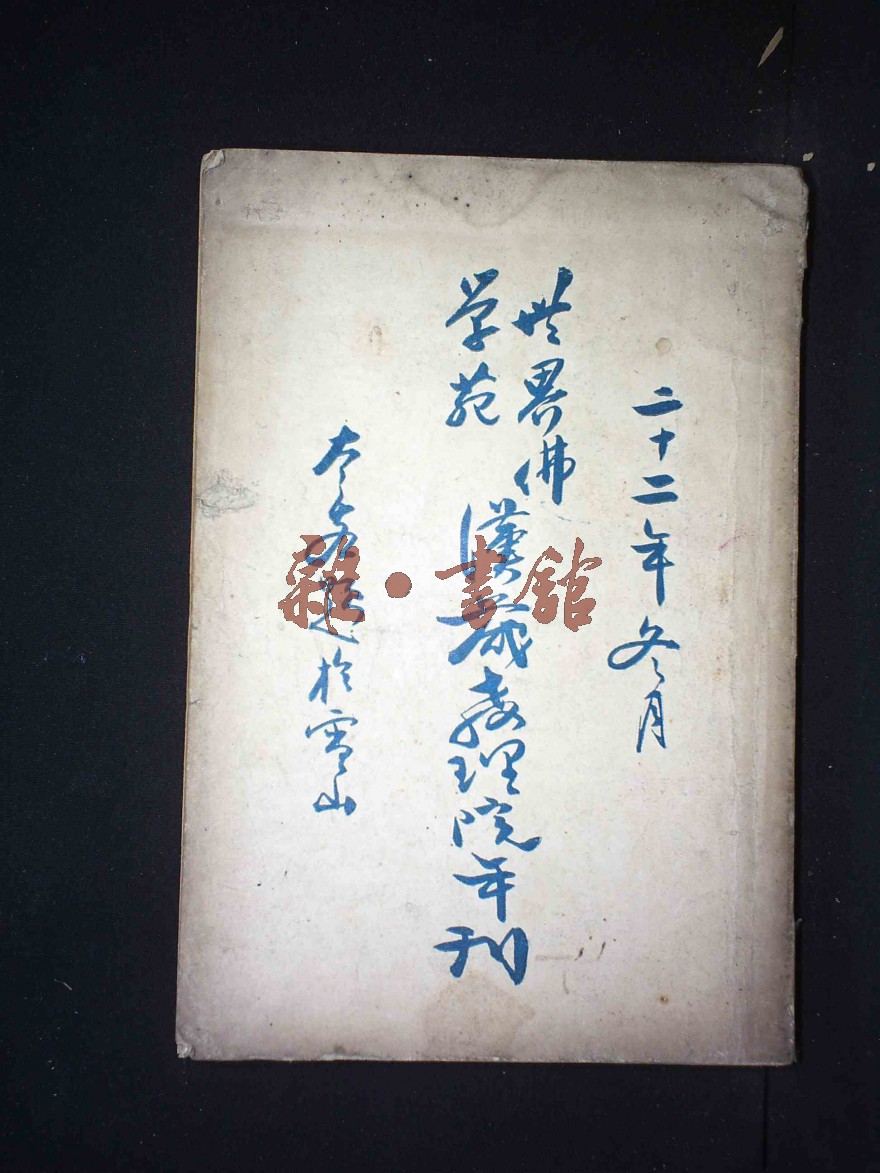 二十二年冬月
世界佛
学苑
漢藏教理院年刊
太虛題於雪山
雜·書館